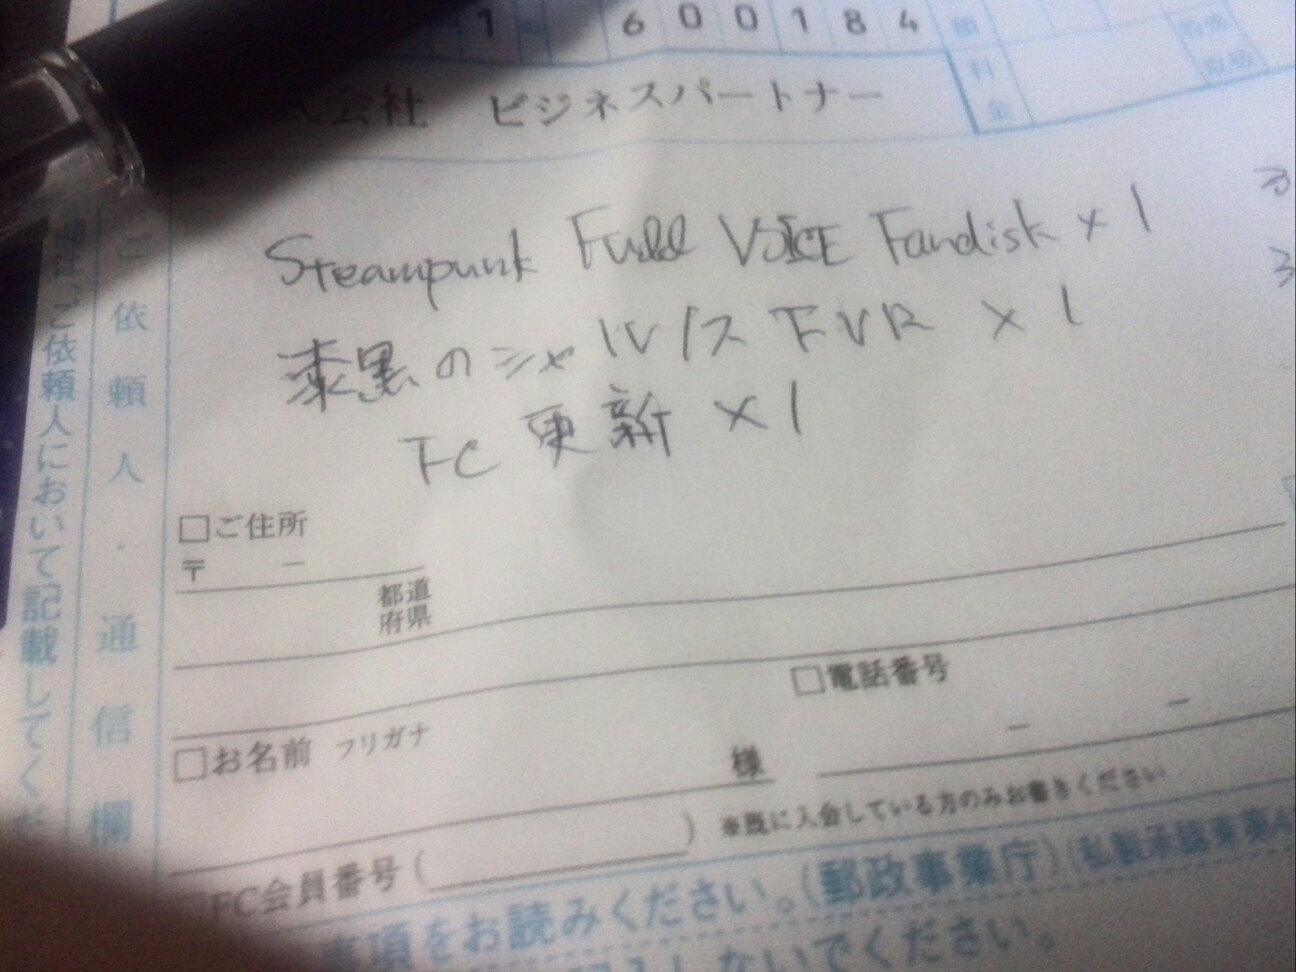 1 600184
料金
式会社 ビジネスパートナー
Steampunk Full VOICE Fandisk × 1
漆黒のシャルノス FVR × 1
FC 更新 × 1
ご依頼人・通信欄
は、ご依頼人において記載してくだ
□ご住所
〒 −
都道
府県
□電話番号
− −
□お名前 フリガナ
様
※既に入会している方のみお書きください
FC会員番号 ( )
事項をお読みください。(郵政事業庁)(私製承認東第
しないでください。